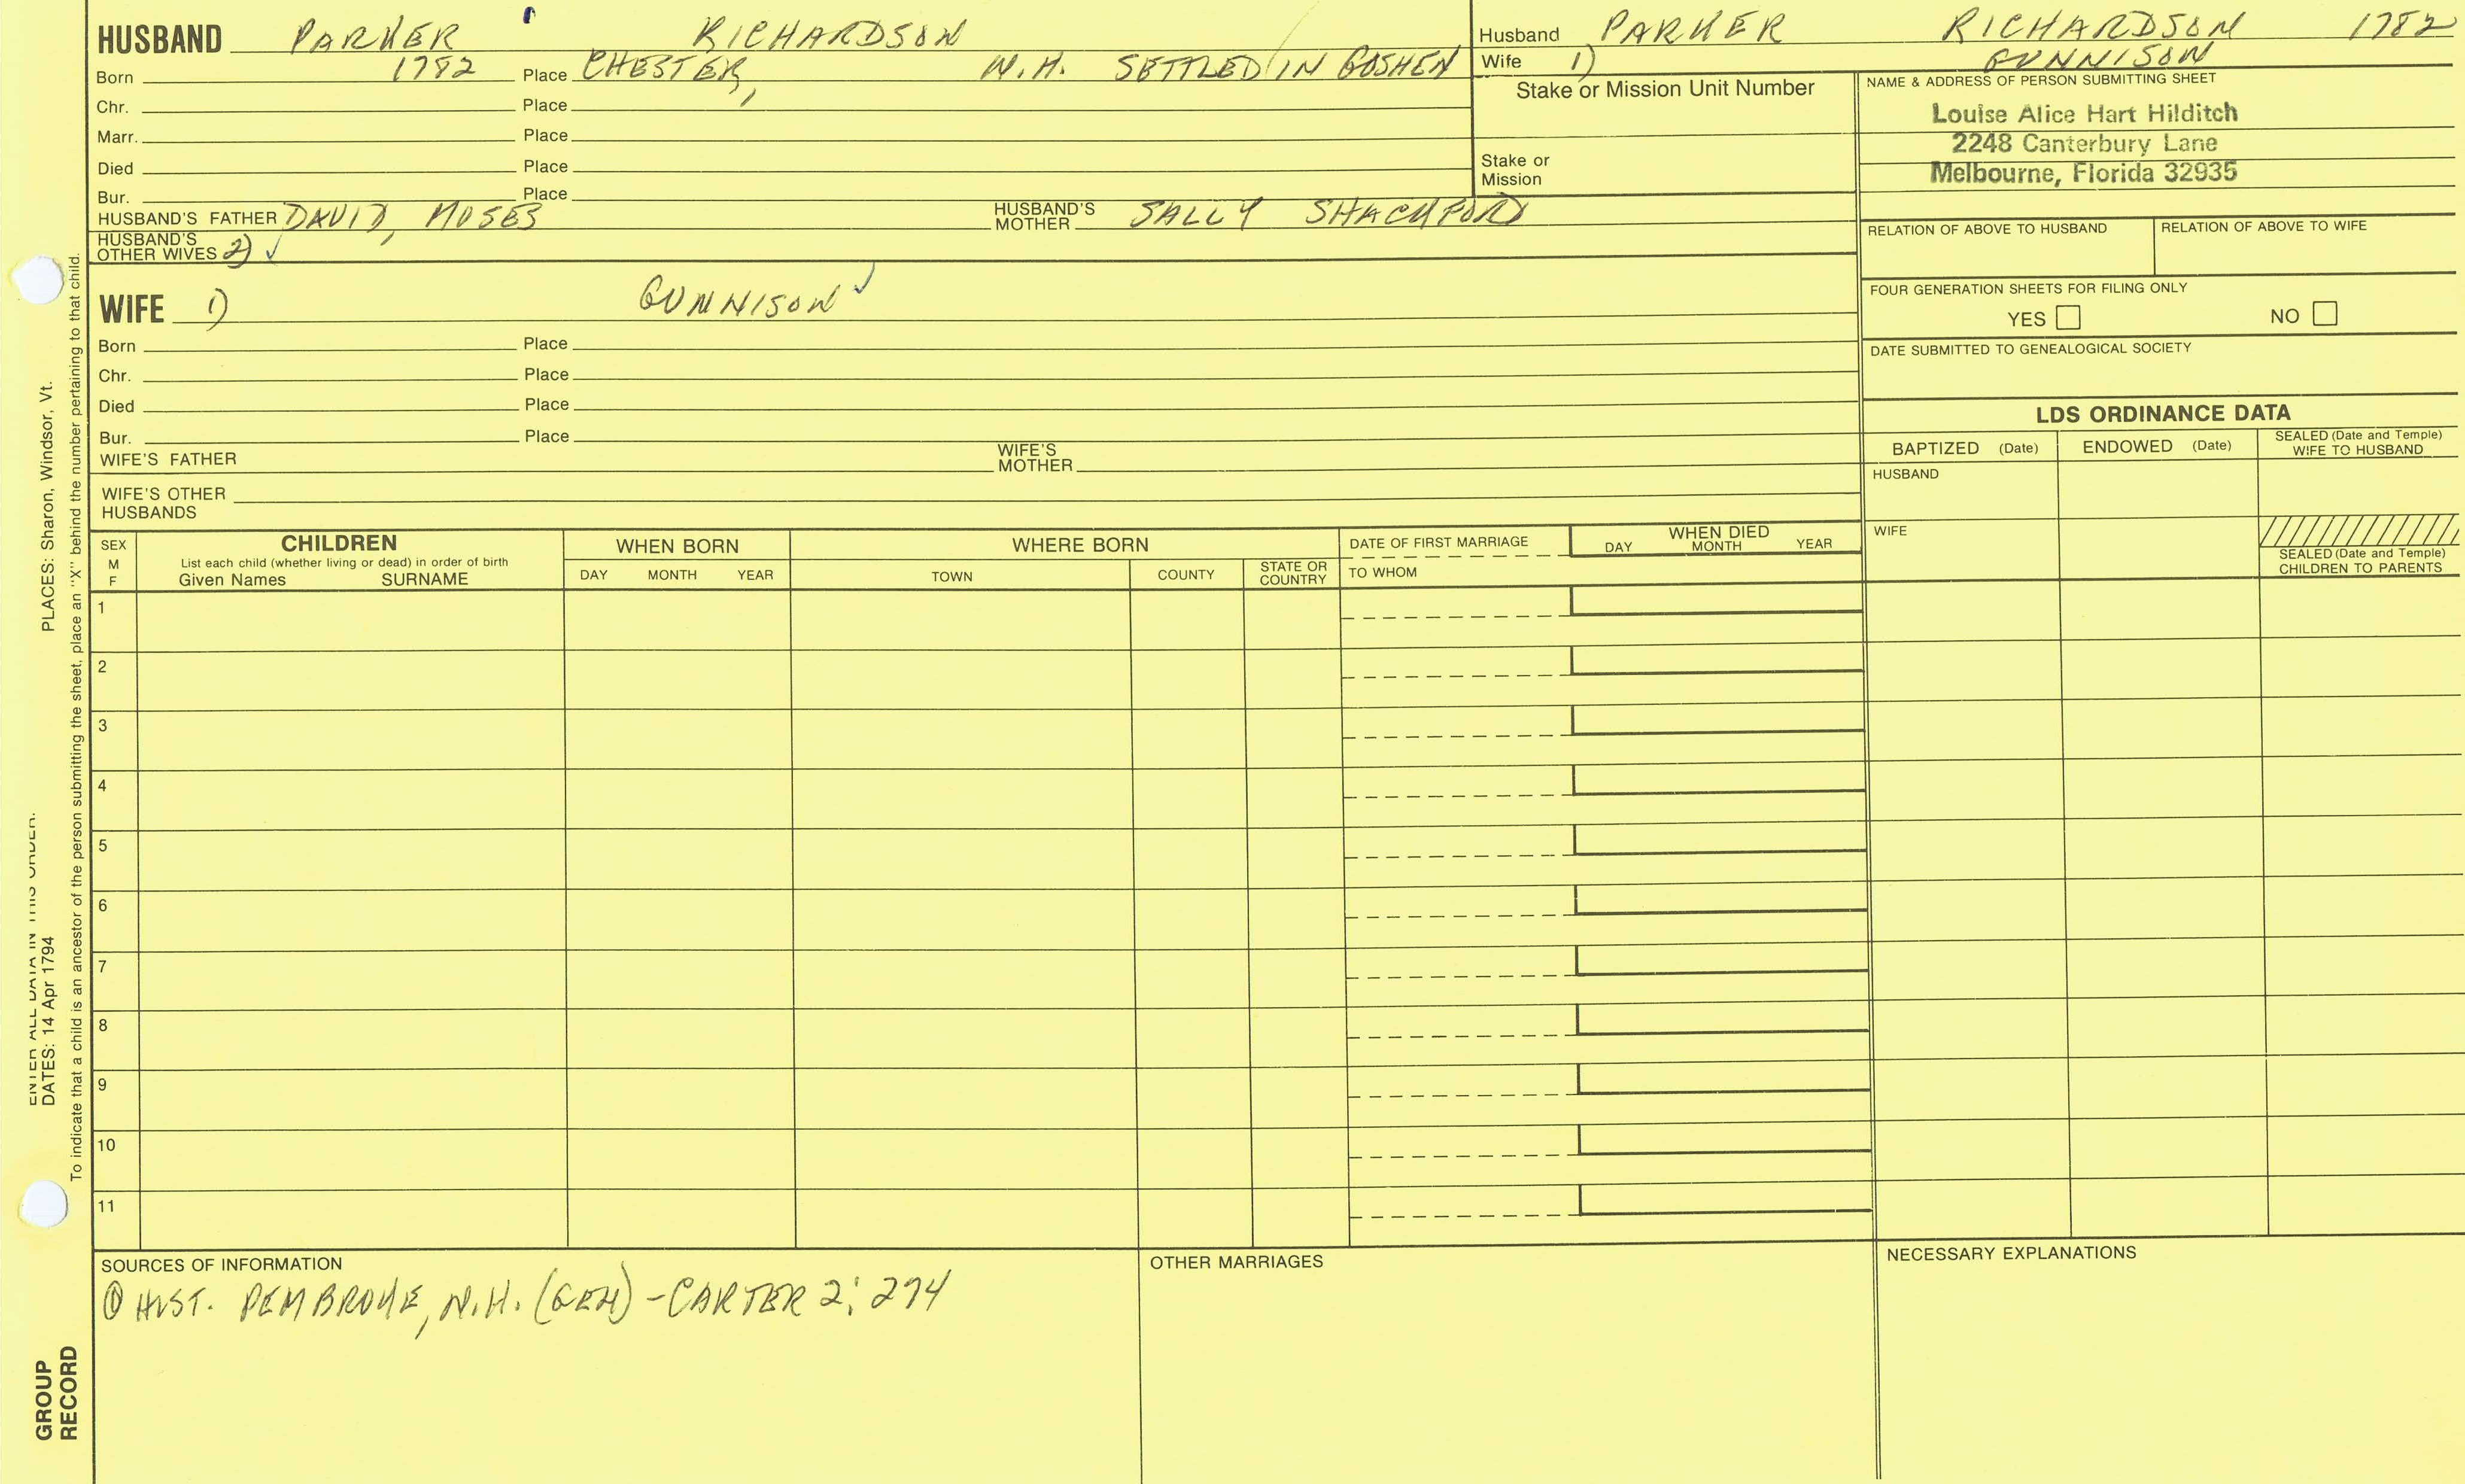 HUSBAND PARKER RICHARDSON
Born 1782 Place CHESTER, N.H. SETTLED IN GOSHEN
Chr. Place
Marr. Place
Died Place
Bur. Place
HUSBAND'S FATHER DAVID, MOSES HUSBAND'S MOTHER SALLY SHACKFORD
HUSBAND'S OTHER WIVES 2) ✓
WIFE 1) GUNNISON ✓
Born Place
Chr. Place
Died Place
Bur. Place
WIFE'S FATHER WIFE'S MOTHER
WIFE'S OTHER HUSBANDS
Husband PARKER RICHARDSON 1782
Wife 1) GUNNISON
Stake or Mission Unit Number
Stake or
Mission
NAME & ADDRESS OF PERSON SUBMITTING SHEET
Louise Alice Hart Hilditch
2248 Canterbury Lane
Melbourne, Florida 32935
RELATION OF ABOVE TO HUSBAND RELATION OF ABOVE TO WIFE
FOUR GENERATION SHEETS FOR FILING ONLY
YES NO
DATE SUBMITTED TO GENEALOGICAL SOCIETY
LDS ORDINANCE DATA
BAPTIZED (Date) ENDOWED (Date) SEALED (Date and Temple) WIFE TO HUSBAND
HUSBAND
WIFE
SEALED (Date and Temple)
CHILDREN TO PARENTS
SEX
M
F
CHILDREN
List each child (whether living or dead) in order of birth
Given Names SURNAME
WHEN BORN
DAY MONTH YEAR
WHERE BORN
TOWN COUNTY STATE OR COUNTRY
DATE OF FIRST MARRIAGE
TO WHOM
WHEN DIED
DAY MONTH YEAR
1
2
3
4
5
6
7
8
9
10
11
SOURCES OF INFORMATION
① HIST. PEMBROKE, N.H. (GEN) - CARTER 2: 274
OTHER MARRIAGES
NECESSARY EXPLANATIONS
ENTER ALL DATA IN THIS ORDER:
DATES: 14 Apr 1794 PLACES: Sharon, Windsor, Vt.
To indicate that a child is an ancestor of the person submitting the sheet, place an "X" behind the number pertaining to that child.
GROUP
RECORD